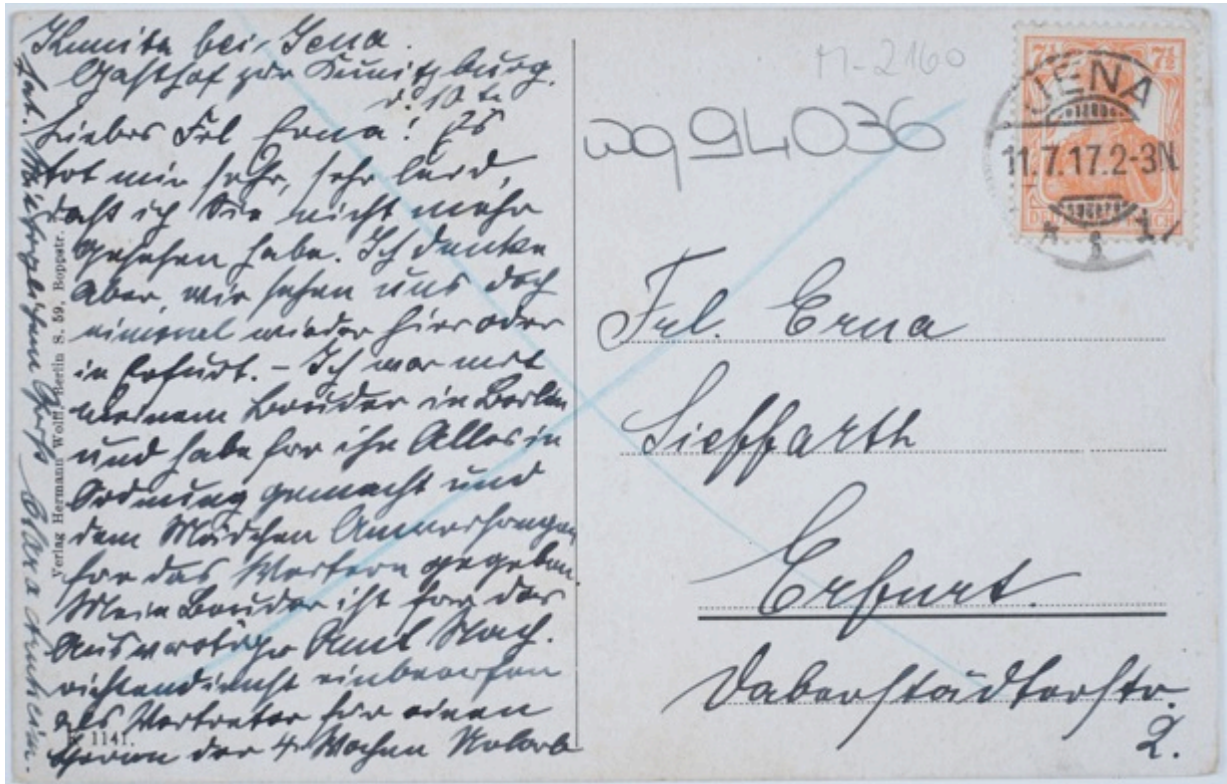 Kunitz bei Jena.
Gasthof zur Kunitzburg.
d. 10 te
Liebes Frl Erna! Es
tut mir sehr, sehr leid,
daß ich Sie nicht mehr
gesehen habe. Ich denke
aber, wir sehen uns doch
einmal wieder hier oder
in Erfurt. – Ich war mit
meinem Bruder in Berlin
und habe für ihn Alles in
Ordnung gemacht und
dem Mädchen Anweisungen
für das Weitere gegeben.
Mein Bruder ist für das
Auswärtige Amt Nach-
richtendienst einberufen
als Vertreter für einen
Herrn der 4 Wochen Urlaub
hat. Mit herzlichem Gruß Clara Arnheim.
Verlag Hermann Wolff, Berlin S. 59, Boppstr.
1141.
M-2160
wq94036
7½ 7½
JENA
11.7.17.2-3N.
Frl. Erna
Sieffarth
Erfurt.
Daberstädterstr.
2.